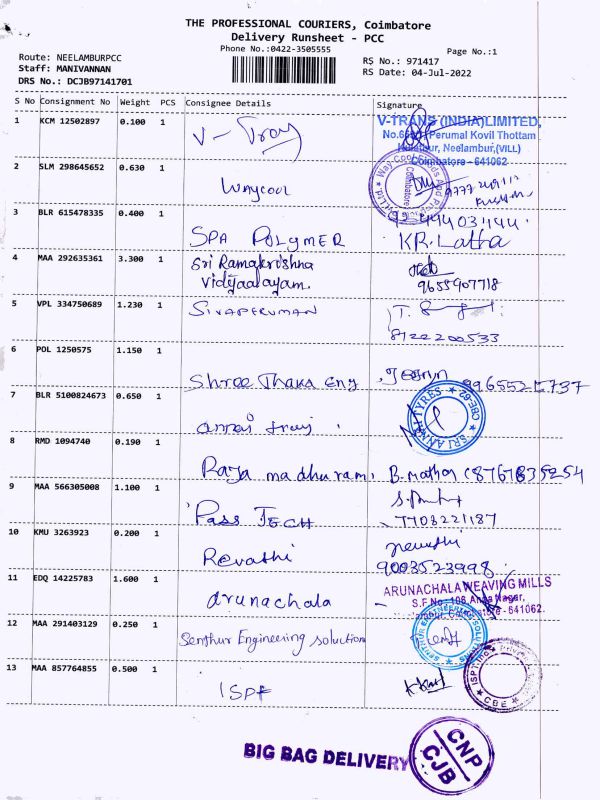 THE PROFESSIONAL COURIERS, Coimbatore
Delivery Runsheet - PCC
Phone No.:0422-3505555
Page No.:1
Route: NEELAMBURPCC
Staff: MANIVANNAN
DRS No.: DCJB97141701
RS No.: 971417
RS Date: 04-Jul-2022
S No Consignment No Weight PCS Consignee Details Signature
1 KCM 12502897 0.100 1 V-Tray
V-TRANS (INDIA) LIMITED,
Perumal Kovil Thottam
Neelambur,(VILL)
Coimbatore - 641062
2 SLM 298645652 0.630 1 Waycool
Coimbatore
3 BLR 615478335 0.400 1 SPA POLYMER KR.Latha
4 MAA 292635361 3.300 1 Sri Ramakrishna
Vidyaalayam.
9655907718
5 VPL 334750689 1.230 1 SIVAPERUMAN
8122200533
6 POL 1250575 1.150 1 Shree Thara Eng
7 BLR 5100824673 0.650 1 annai
SRI ANNAI TYRES CBE-62
8 RMD 1094740 0.190 1 Raja madhuram,
9 MAA 566305008 1.100 1 Pass TECH
7708221187
10 KMU 3263923 0.200 1 Revathi revathi
9003523998
11 EDQ 14225783 1.600 1 arunachala
ARUNACHALA WEAVING MILLS
S.F.No. 106 Nagar,
- 641062.
12 MAA 291403129 0.250 1 Senthur Engineering solution
SENTHUR ENGINEERING SOLUTIONS
13 MAA 857764855 0.500 1 ISPF
CBE
BIG BAG DELIVERY
CNP
CJB